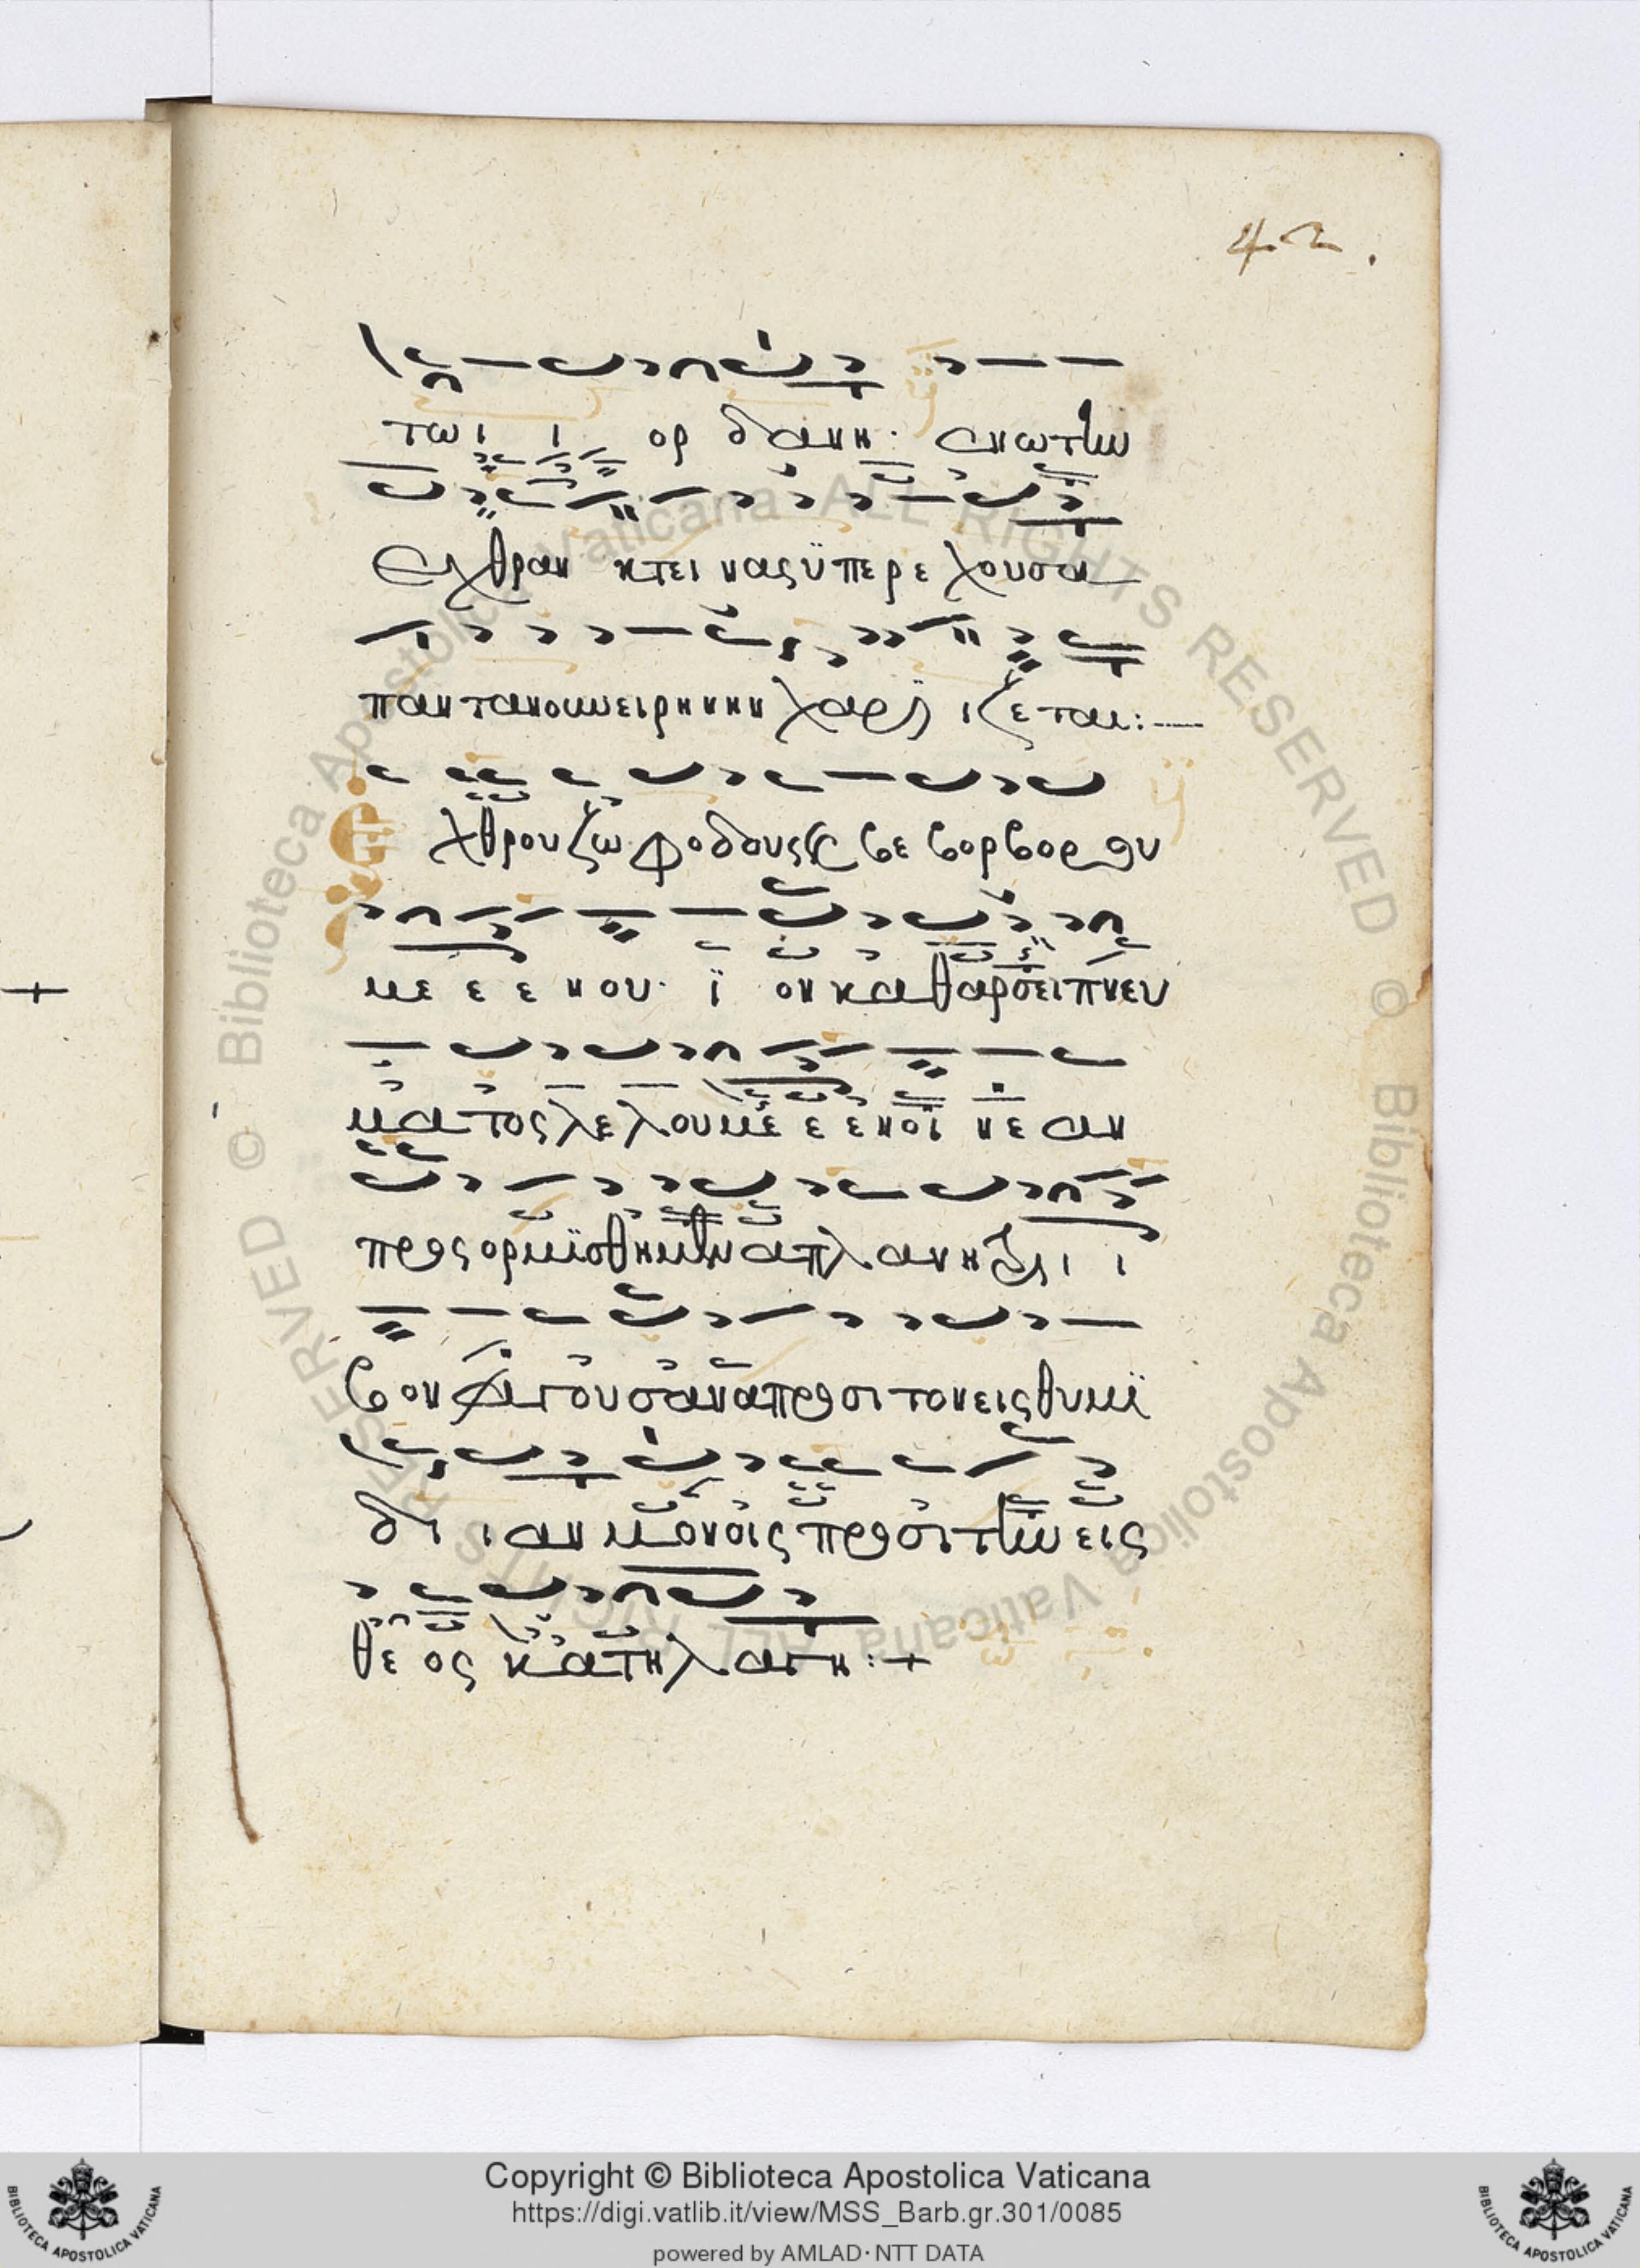 42.
τω ι ι ορ δανη· ενωτην
εχθραν κτει νας ϋπερε χουσαν
παντανουνειρηνην χαρι ιζεται:—
Εχθρου ζωφοδους κε βε βορβορων
με ε ε νου· ϊ ον καθαρσειπνευ
ματος λελουμε ε ενοι νε αν
προςορμϊσθημεν απλανητρι ι ι
βον αγουσαναπροσιτονεις θυμϊ
δι ι αν μονοις προσιτηνεις
θε ος κατηλαγη:+
© Biblioteca Apostolica Vaticana ALL RIGHTS RESERVED
© Biblioteca Apostolica Vaticana ALL RIGHTS RESERVED
BIBLIOTECA APOSTOLICA VATICANA
Copyright © Biblioteca Apostolica Vaticana
https://digi.vatlib.it/view/MSS_Barb.gr.301/0085
powered by AMLAD·NTT DATA
BIBLIOTECA APOSTOLICA VATICANA